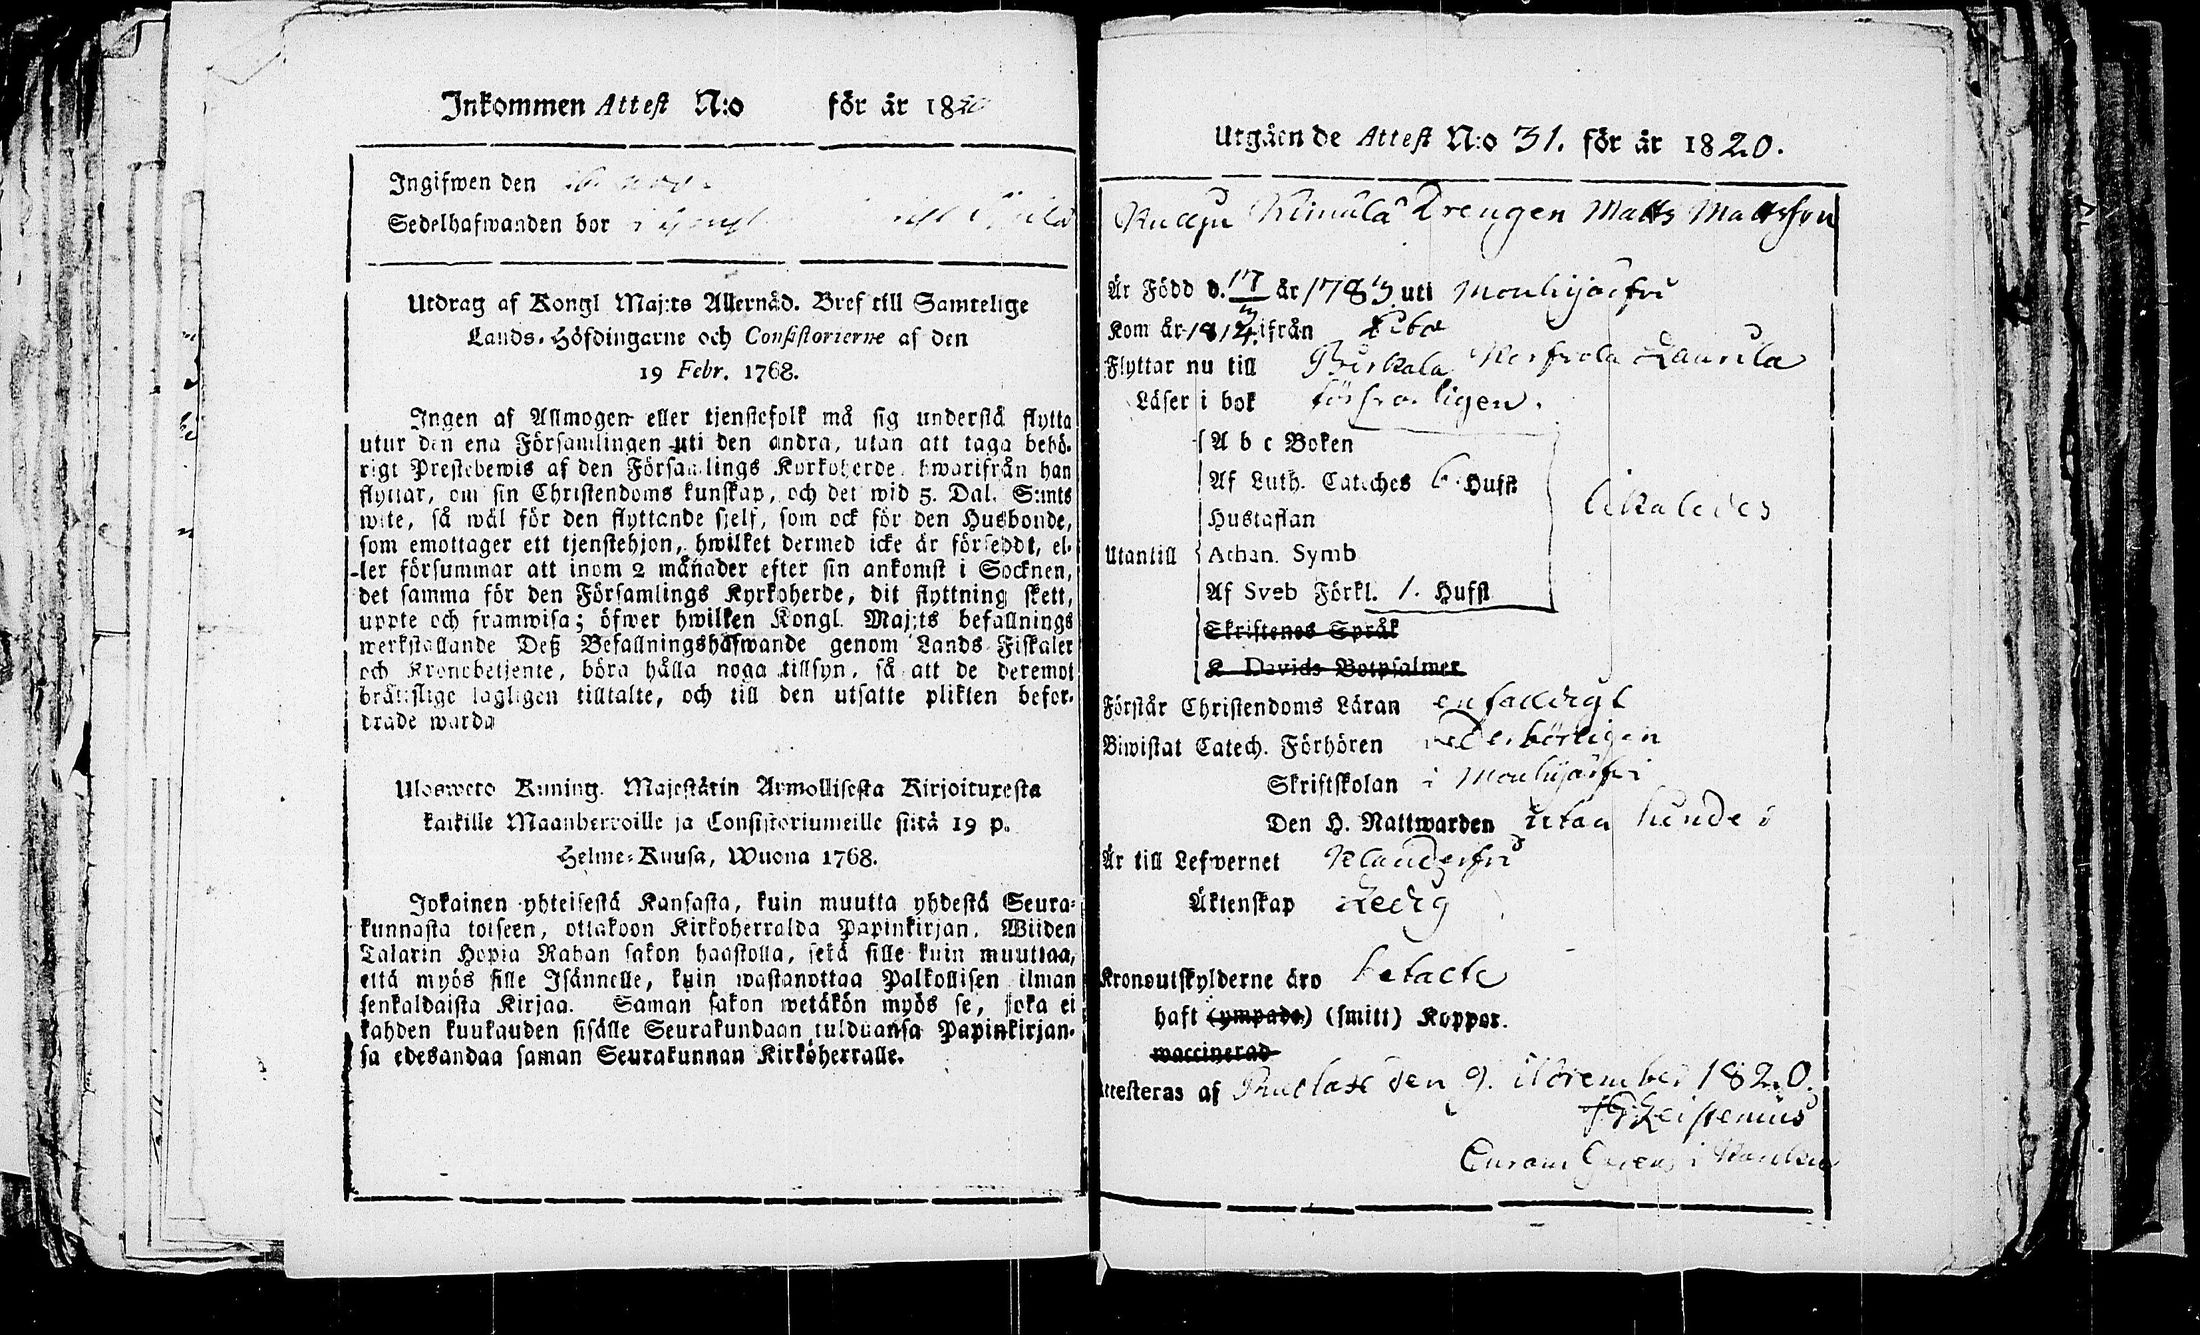 Inkommen Attest N:o för år 1820
Ingifwen den
Sedelhafwanden bor
Utdrag af Kongl Maj:ts Allernåd. Bref till Samtelige
Lands-Höfdingarne och Consistorierne af den
19 Febr. 1768.
Ingen af Allmogen eller tjenstefolk må sig understå flytta
utur den ena Församlingen uti den andra, utan att taga behö-
rigt Prestebewis af den Församlings Kyrkoherde, hwarifrån han
flyttar, om sin Christendoms kunskap, och det wid 5. Dal. S:mts
wite, så wäl för den flyttande sjelf, som ock för den Husbonde,
som emottager ett tjenstehjon, hwilket dermed icke är försedt, el-
ler försummar att inom 2 månader efter sin ankomst i Socknen,
det samma för den Församlings Kyrkoherde, dit flyttning skett,
uppte och framwisa; öfwer hwilken Kongl. Maj:ts befallnings
werkställande Deß Befallningshafwande genom Lands Fiskaler
och Kronobetjente, böra hålla noga tillsyn, så att de deremot
bråtslige lagligen tilltalte, och till den utsatte plikten befor-
drade warda
Ulosweto Kuning. Majestätin Armollisesta Kirjoituxesta
kaikille Maanherroille ja Consistoriumeille siitä 19 p.
Helme-Kuusa, Wuona 1768.
Jokainen yhteisestä Kansasta, kuin muutta yhdestä Seura-
kunnasta toiseen, ottakoon Kirkoherralda Papinkirjan, Wiiden
Talarin Hopia Rahan sakon haastolla, sekä sille kuin muuttaa,
että myös sille Isännelle, kuin wastanottaa Palkollisen ilman
senkaldaista Kirjaa. Saman sakon wetäkön myös se, joka ei
kahden kuukauden sisälle Seurakundaan tulduansa Papinkirjan-
sa edesandaa saman Seurakunnan Kirköherralle.
Utgåen de Attest N:o 31. för år 1820.
Drengen Matts Mattsson
Är Född d. 17/3 år 1783 uti Mouhijärfvi
Kom år 1814 ifrån
Flyttar nu till Birkala Laurila
Läser i bok försvarligen.
A b c Boken
Af Luth. Catches 6. Hufst
Hustaflan
likaledes
Utantill Athan. Symb
Af Sveb Förkl. 1. Hufst
Skriftenes Språk
K. Davids Botpsalmer
Förstår Christendoms Läran enfalldigt
Biwistat Catech. Förhören vederbörligen
Skriftskolan i Mouhijärfvi
Den H. Nattwarden utan hinder
Är till Lefwernet Klanderfri
Äktenskap Ledig
Kronoutskylderne äro betalte
haft (ympade) (smitt) Koppor.
waccinerad
Attesteras af den 9. November 1820.